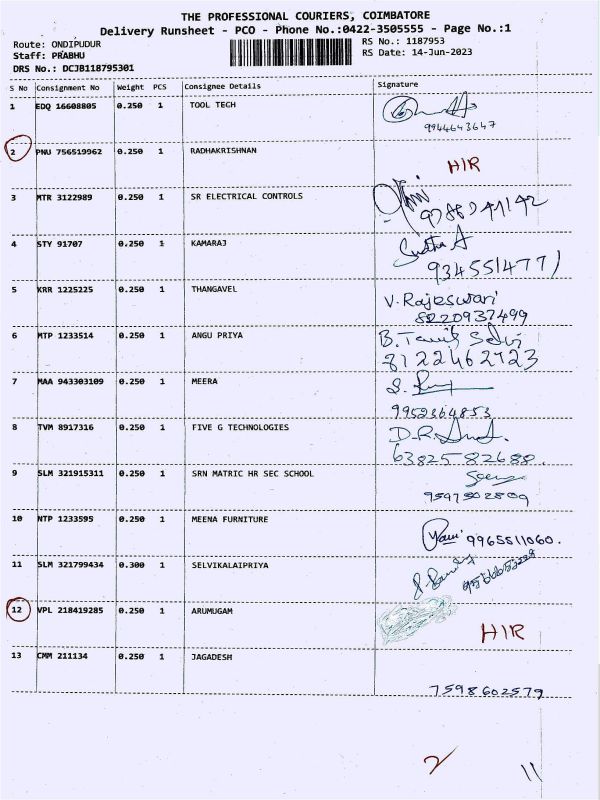 THE PROFESSIONAL COURIERS, COIMBATORE
Delivery Runsheet - PCO - Phone No.:0422-3505555 - Page No.:1
Route: ONDIPUDUR
RS No.: 1187953
Staff: PRABHU
RS Date: 14-Jun-2023
DRS No.: DCJB118795301
S No Consignment No Weight PCS Consignee Details Signature
1 EDQ 16608805 0.250 1 TOOL TECH
9944643647
2 PNU 756519962 0.250 1 RADHAKRISHNAN
HIR
3 MTR 3122989 0.250 1 SR ELECTRICAL CONTROLS
4 STY 91707 0.250 1 KAMARAJ
Sudha A
5 KRR 1225225 0.250 1 THANGAVEL
V. Rajeswari
8220937499
6 MTP 1233514 0.250 1 ANGU PRIYA
B. Tamil Selvi
8122462723
7 MAA 943303109 0.250 1 MEERA
9952364853
8 TVM 8917316 0.250 1 FIVE G TECHNOLOGIES
D.R.
6382582688.
9 SLM 321915311 0.250 1 SRN MATRIC HR SEC SCHOOL
9597502809
10 NTP 1233595 0.250 1 MEENA FURNITURE
9965511060.
11 SLM 321799434 0.300 1 SELVIKALAIPRIYA
12 VPL 218419285 0.250 1 ARUMUGAM
HIR
13 CMM 211134 0.250 1 JAGADESH
7598602579
2
11